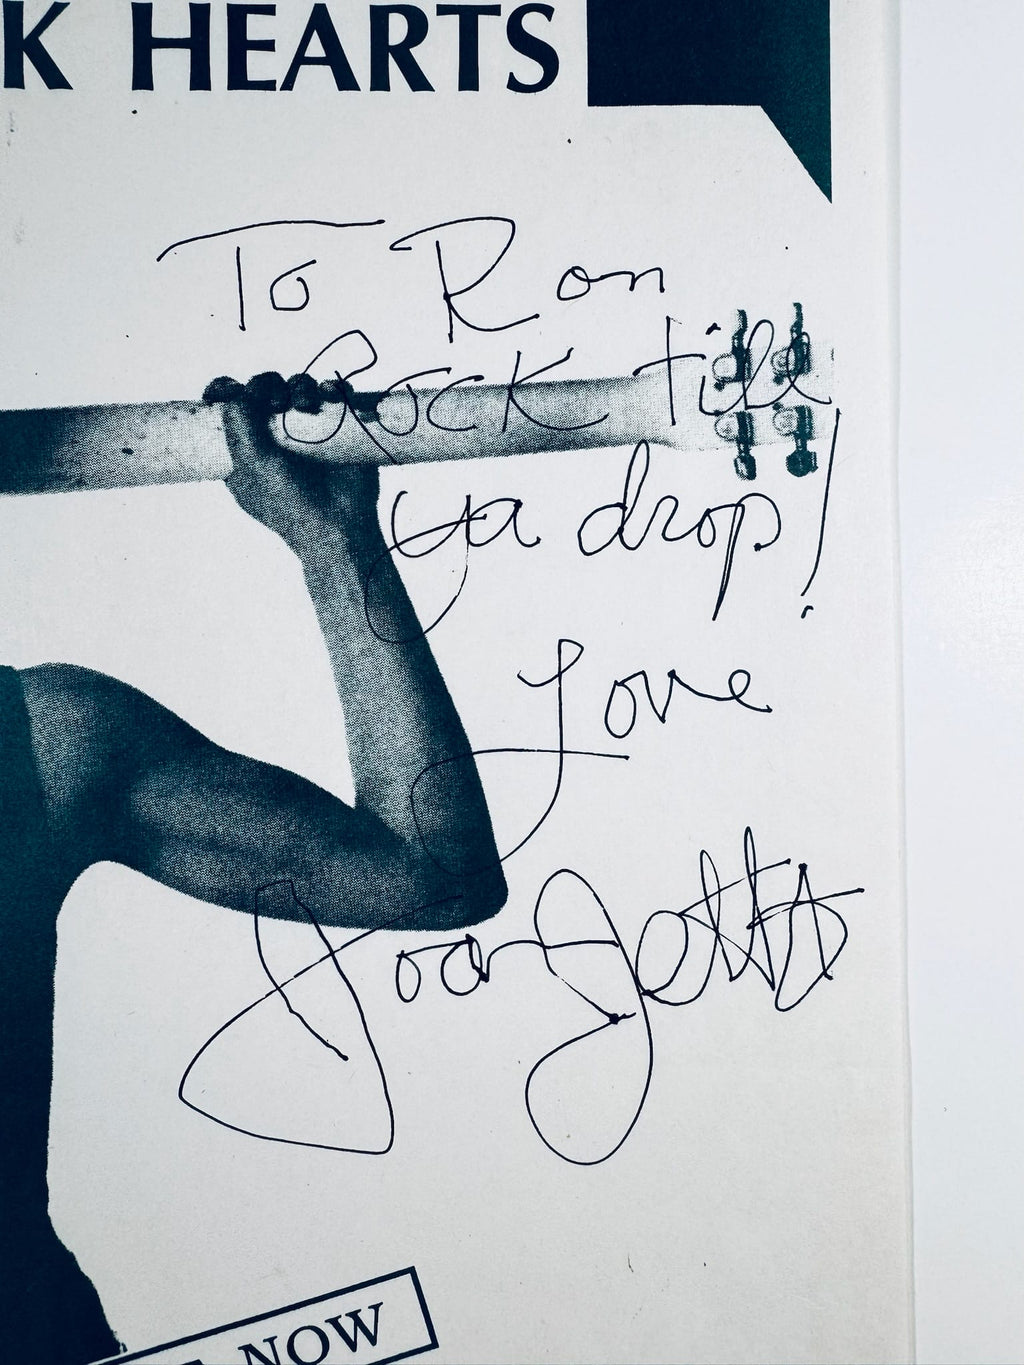 K HEARTS
To Ron
Rock till
ya drop!
Love
Joan Jett
NOW